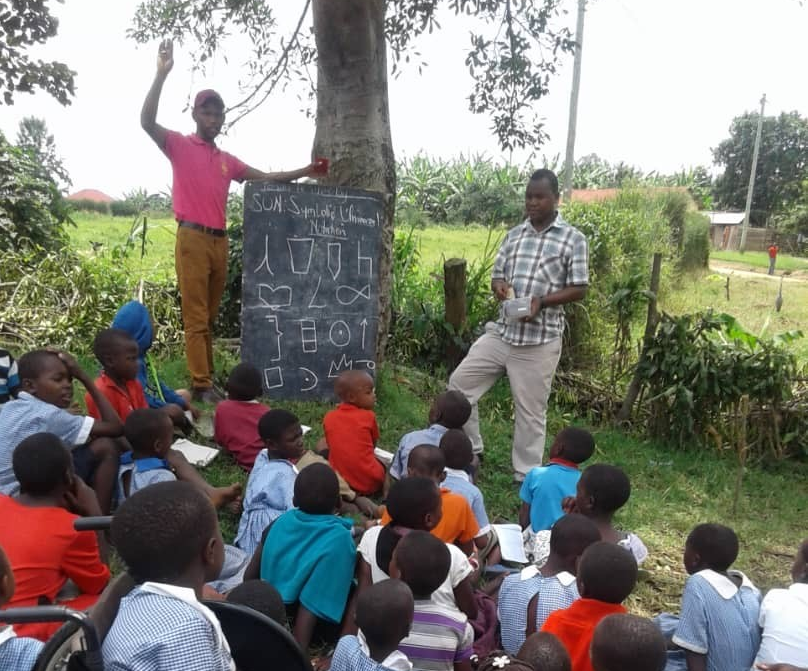 SUN: Symbolic Universal
Notation